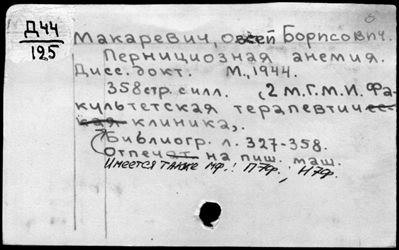 Д44
125
Макаревич, Овсей Борисович.
Пернициозная анемия.
Дисс. докт. М., 1944.
358 стр. с илл. (2 М.Г.М.И. Фа-
культетская терапевтичес-
кая клиника).
Библиогр. л. 327-358.
Отпечат на пиш. маш.
Имеется также мф.: П7Ф.; Н7Ф.